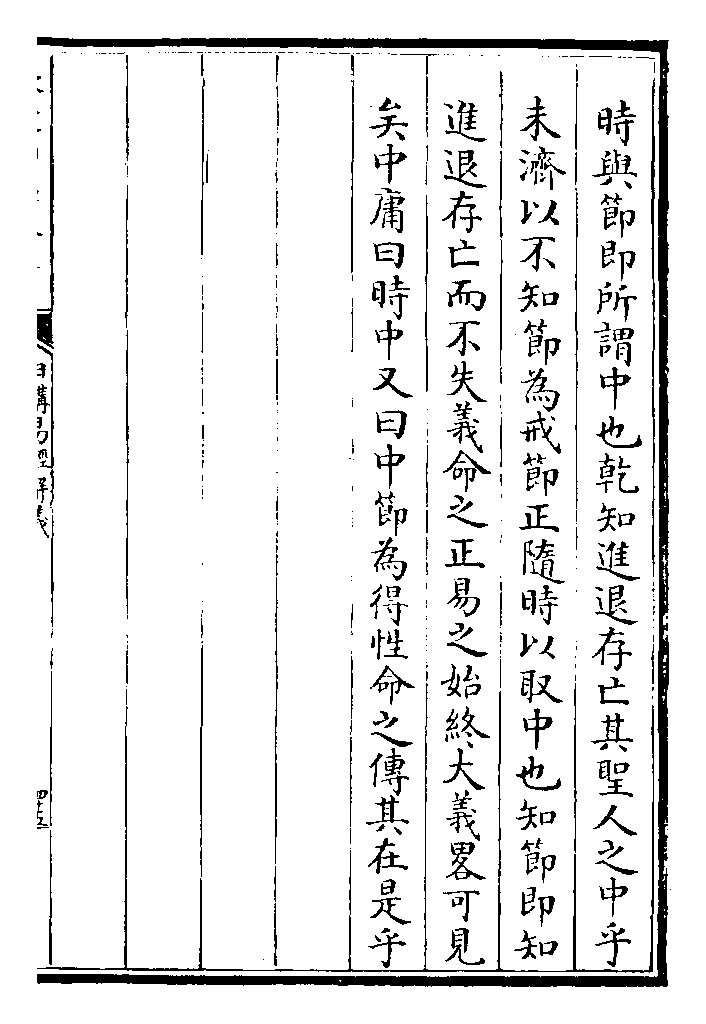 時與節即所謂中也乾知進退存亡其聖人之中乎
未濟以不知節為戒節正隨時以取中也知節即知
進退存亡而不失義命之正易之始終大義畧可見
矣中庸曰時中又曰中節為得性命之傳其在是乎
日講易經解義
四十五